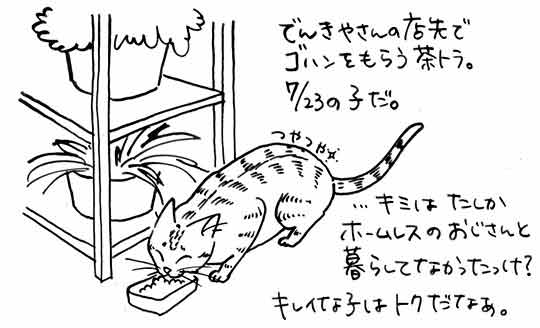 でんきやさんの店先で
ゴハンをもらう茶トラ。
7/23の子だ。
つやつや
…キミはたしか
ホームレスのおじさんと
暮らしてなかったっけ?
キレイな子はトクだなぁ。